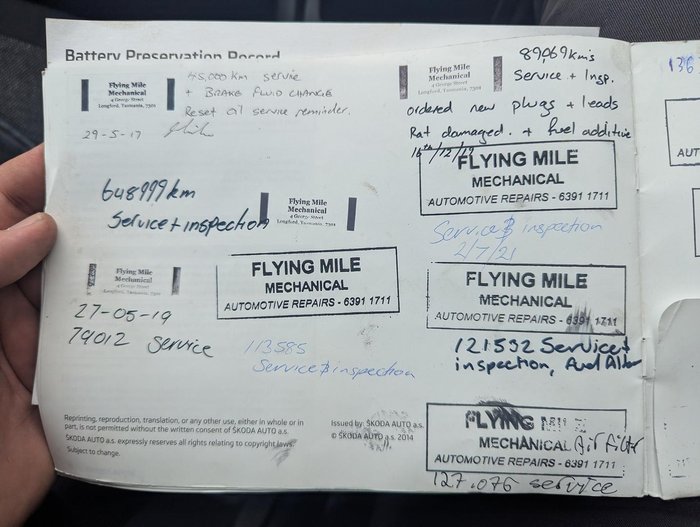 Battery Preservation Record
Flying Mile
Mechanical
4 George Street
Longford, Tasmania, 7301
45,000 km service
+ BRAKE FLUID CHANGE
Reset oil service reminder.
29-5-17
648999km
Service + inspection
Flying Mile
Mechanical
4 George Street
Longford, Tasmania, 7301
Flying Mile
Mechanical
27-05-19
79012 Service
FLYING MILE
MECHANICAL
AUTOMOTIVE REPAIRS - 6391 1711
113585
Service & inspection
Reprinting, reproduction, translation, or any other use, either in whole or in
part, is not permitted without the written consent of ŠKODA AUTO a.s.
ŠKODA AUTO a.s. expressly reserves all rights relating to copyright laws.
Subject to change.
Issued by: ŠKODA AUTO a.s.
© ŠKODA AUTO a.s. 2014
Flying Mile
Mechanical
4 George Street
Longford, Tasmania, 7301
89,069 km's
Service + Insp.
ordered new plugs + leads
Rat damaged. + fuel additive
16th/12/19
FLYING MILE
MECHANICAL
AUTOMOTIVE REPAIRS - 6391 1711
Service & inspection
2/7/21
FLYING MILE
MECHANICAL
AUTOMOTIVE REPAIRS - 6391 1711
121532 Service +
inspection,
FLYING MILE
MECHANICAL Air Filter
AUTOMOTIVE REPAIRS - 6391 1711
127.076 service
136
AUT